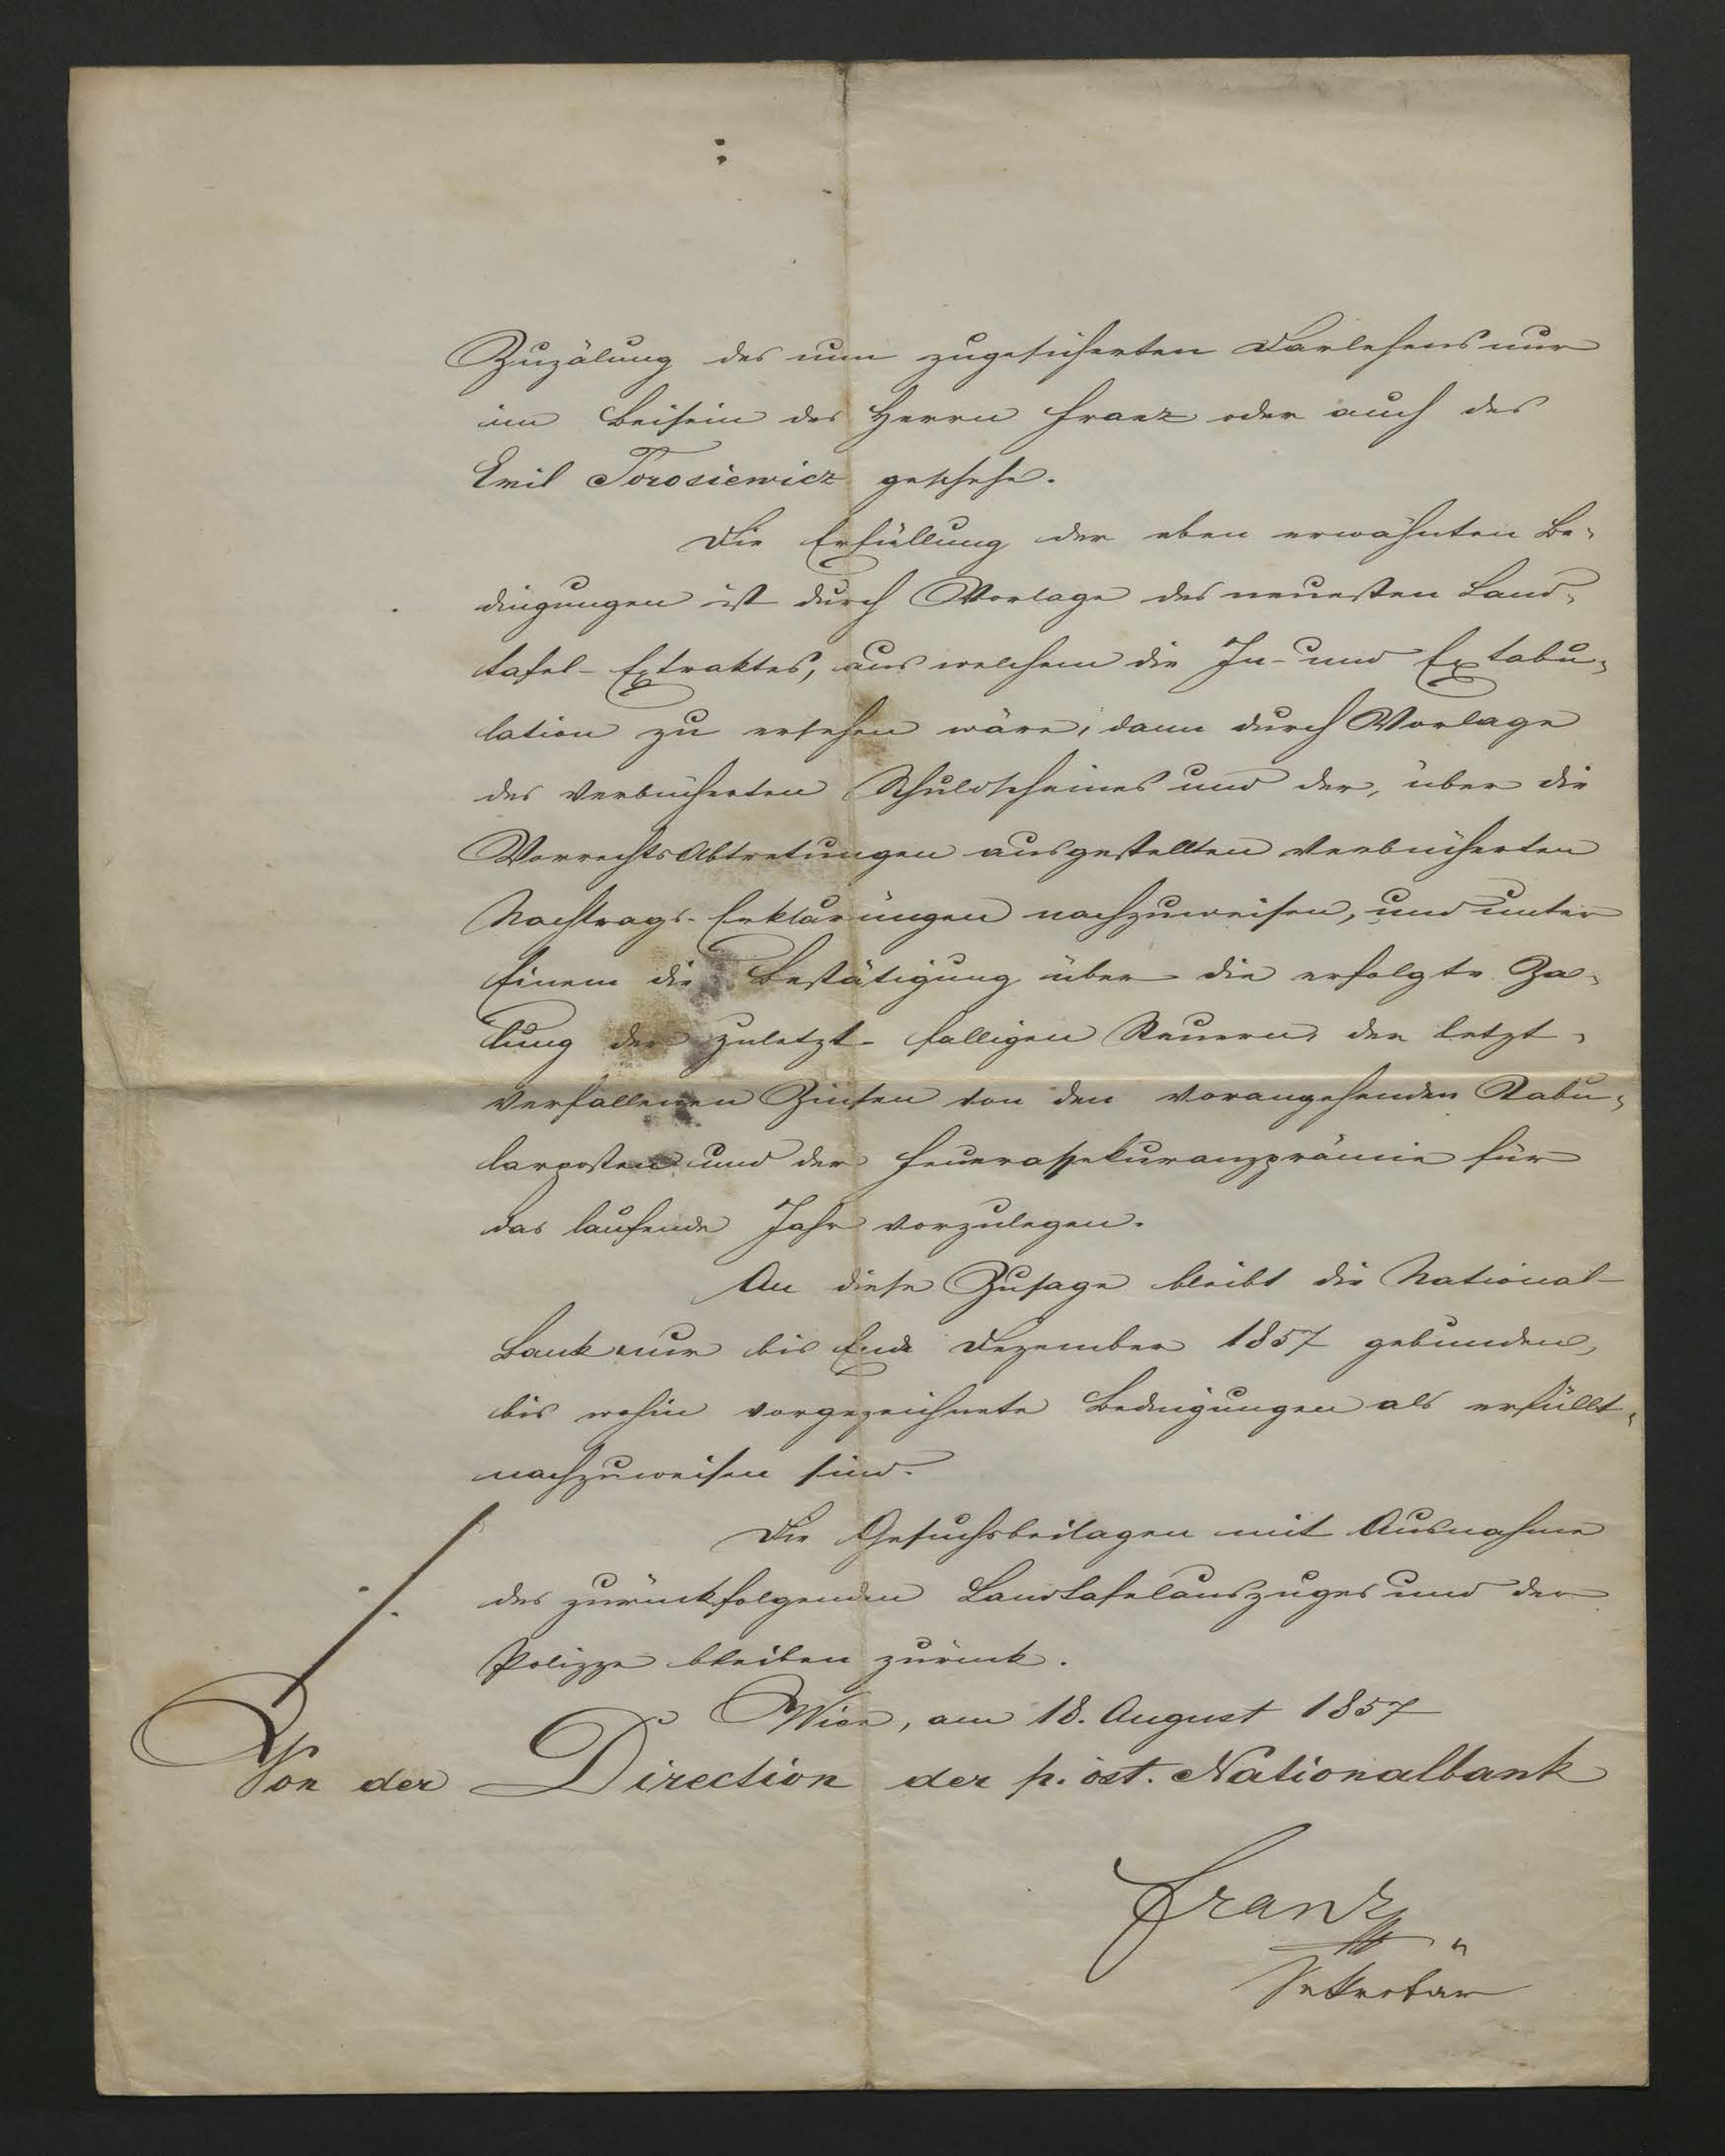 Zuzälung des nun zugesicherten Darlehens nur
im Beisein des Herrn Franz oder auch des
Emil Torosiewicz geschehe.
Die Erfüllung der eben erwähnten Be-
dingungen ist durch Vorlage des neuesten Land-
tafel-Extraktes, aus welchem die In- und Extabu-
lation zu ersehen wäre, dann durch Vorlage
des verbücherten Schuldscheines und der, über die
Vorrechts Abtretungen ausgestellten verbücherten
Nachtrags-Erklärungen nachzuweisen, und unter
Einem die Bestätigung über die erfolgte Za-
lung der zuletzt-fälligen Steuern, der letzt-
verfallenen Zinsen von den vorangehenden Tabu-
larposten und der Feuerassekuranzprämie für
das laufende Jahr vorzulegen.
An diese Zusage bleibt die National-
Bank nur bis Ende Dezember 1857 gebunden,
bis wohin vorgezeichnete Bedingungen als erfüllt-
nachzuweisen sind.
Die Gesuchsbeilagen mit Ausnahme
des zurückfolgenden Landtafelauszuges und der
Polizze bleiben zurück.
Wien, am 18. August 1857
Von der Direction der p. öst. Nationalbank
Franz
Sekretär